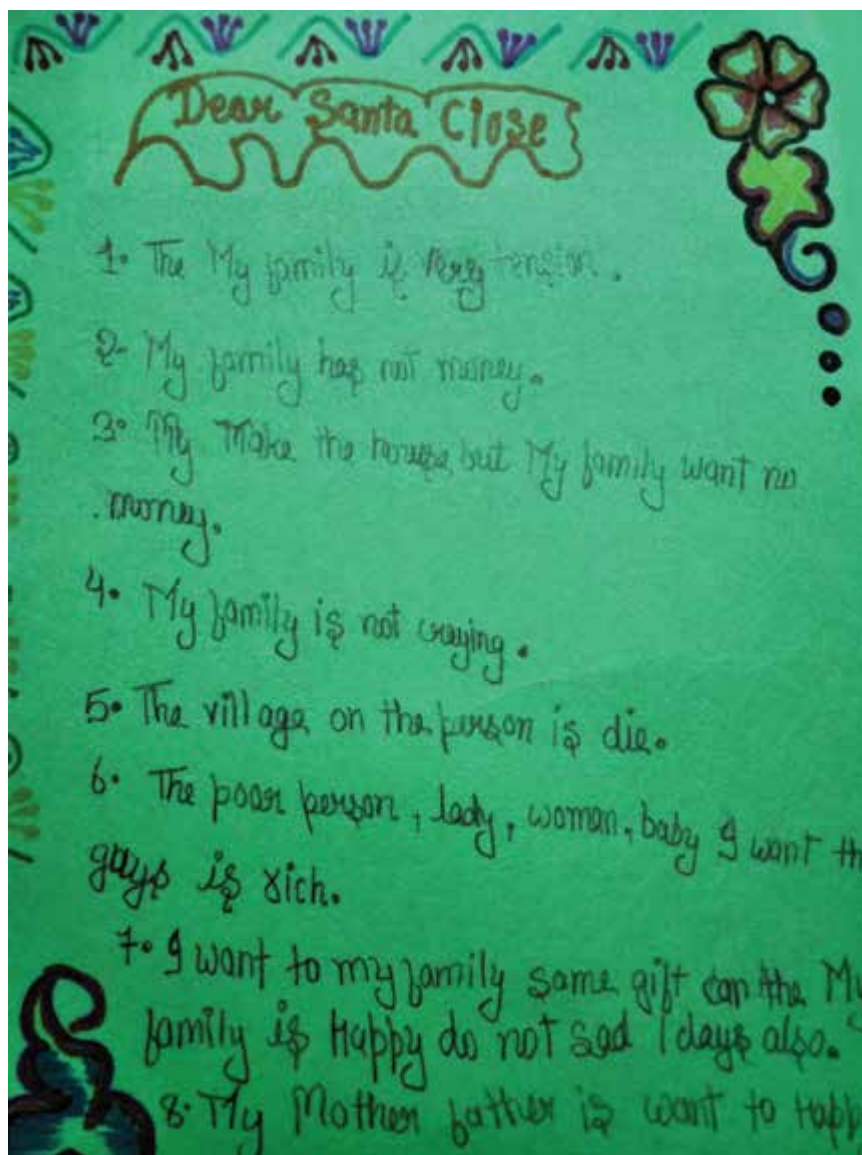 Dear Santa Close
1. The My family is very tension.
2- My family has not money.
3. My Make the house but My family want no
money.
4. My family is not crying.
5. The village on the person is die.
6. The poor person, lady, woman, baby I want th
guys is rich.
7. I want to my family some gift can the My
family is Happy do not sad 1 days also.
8. My Mother father is want to Happ